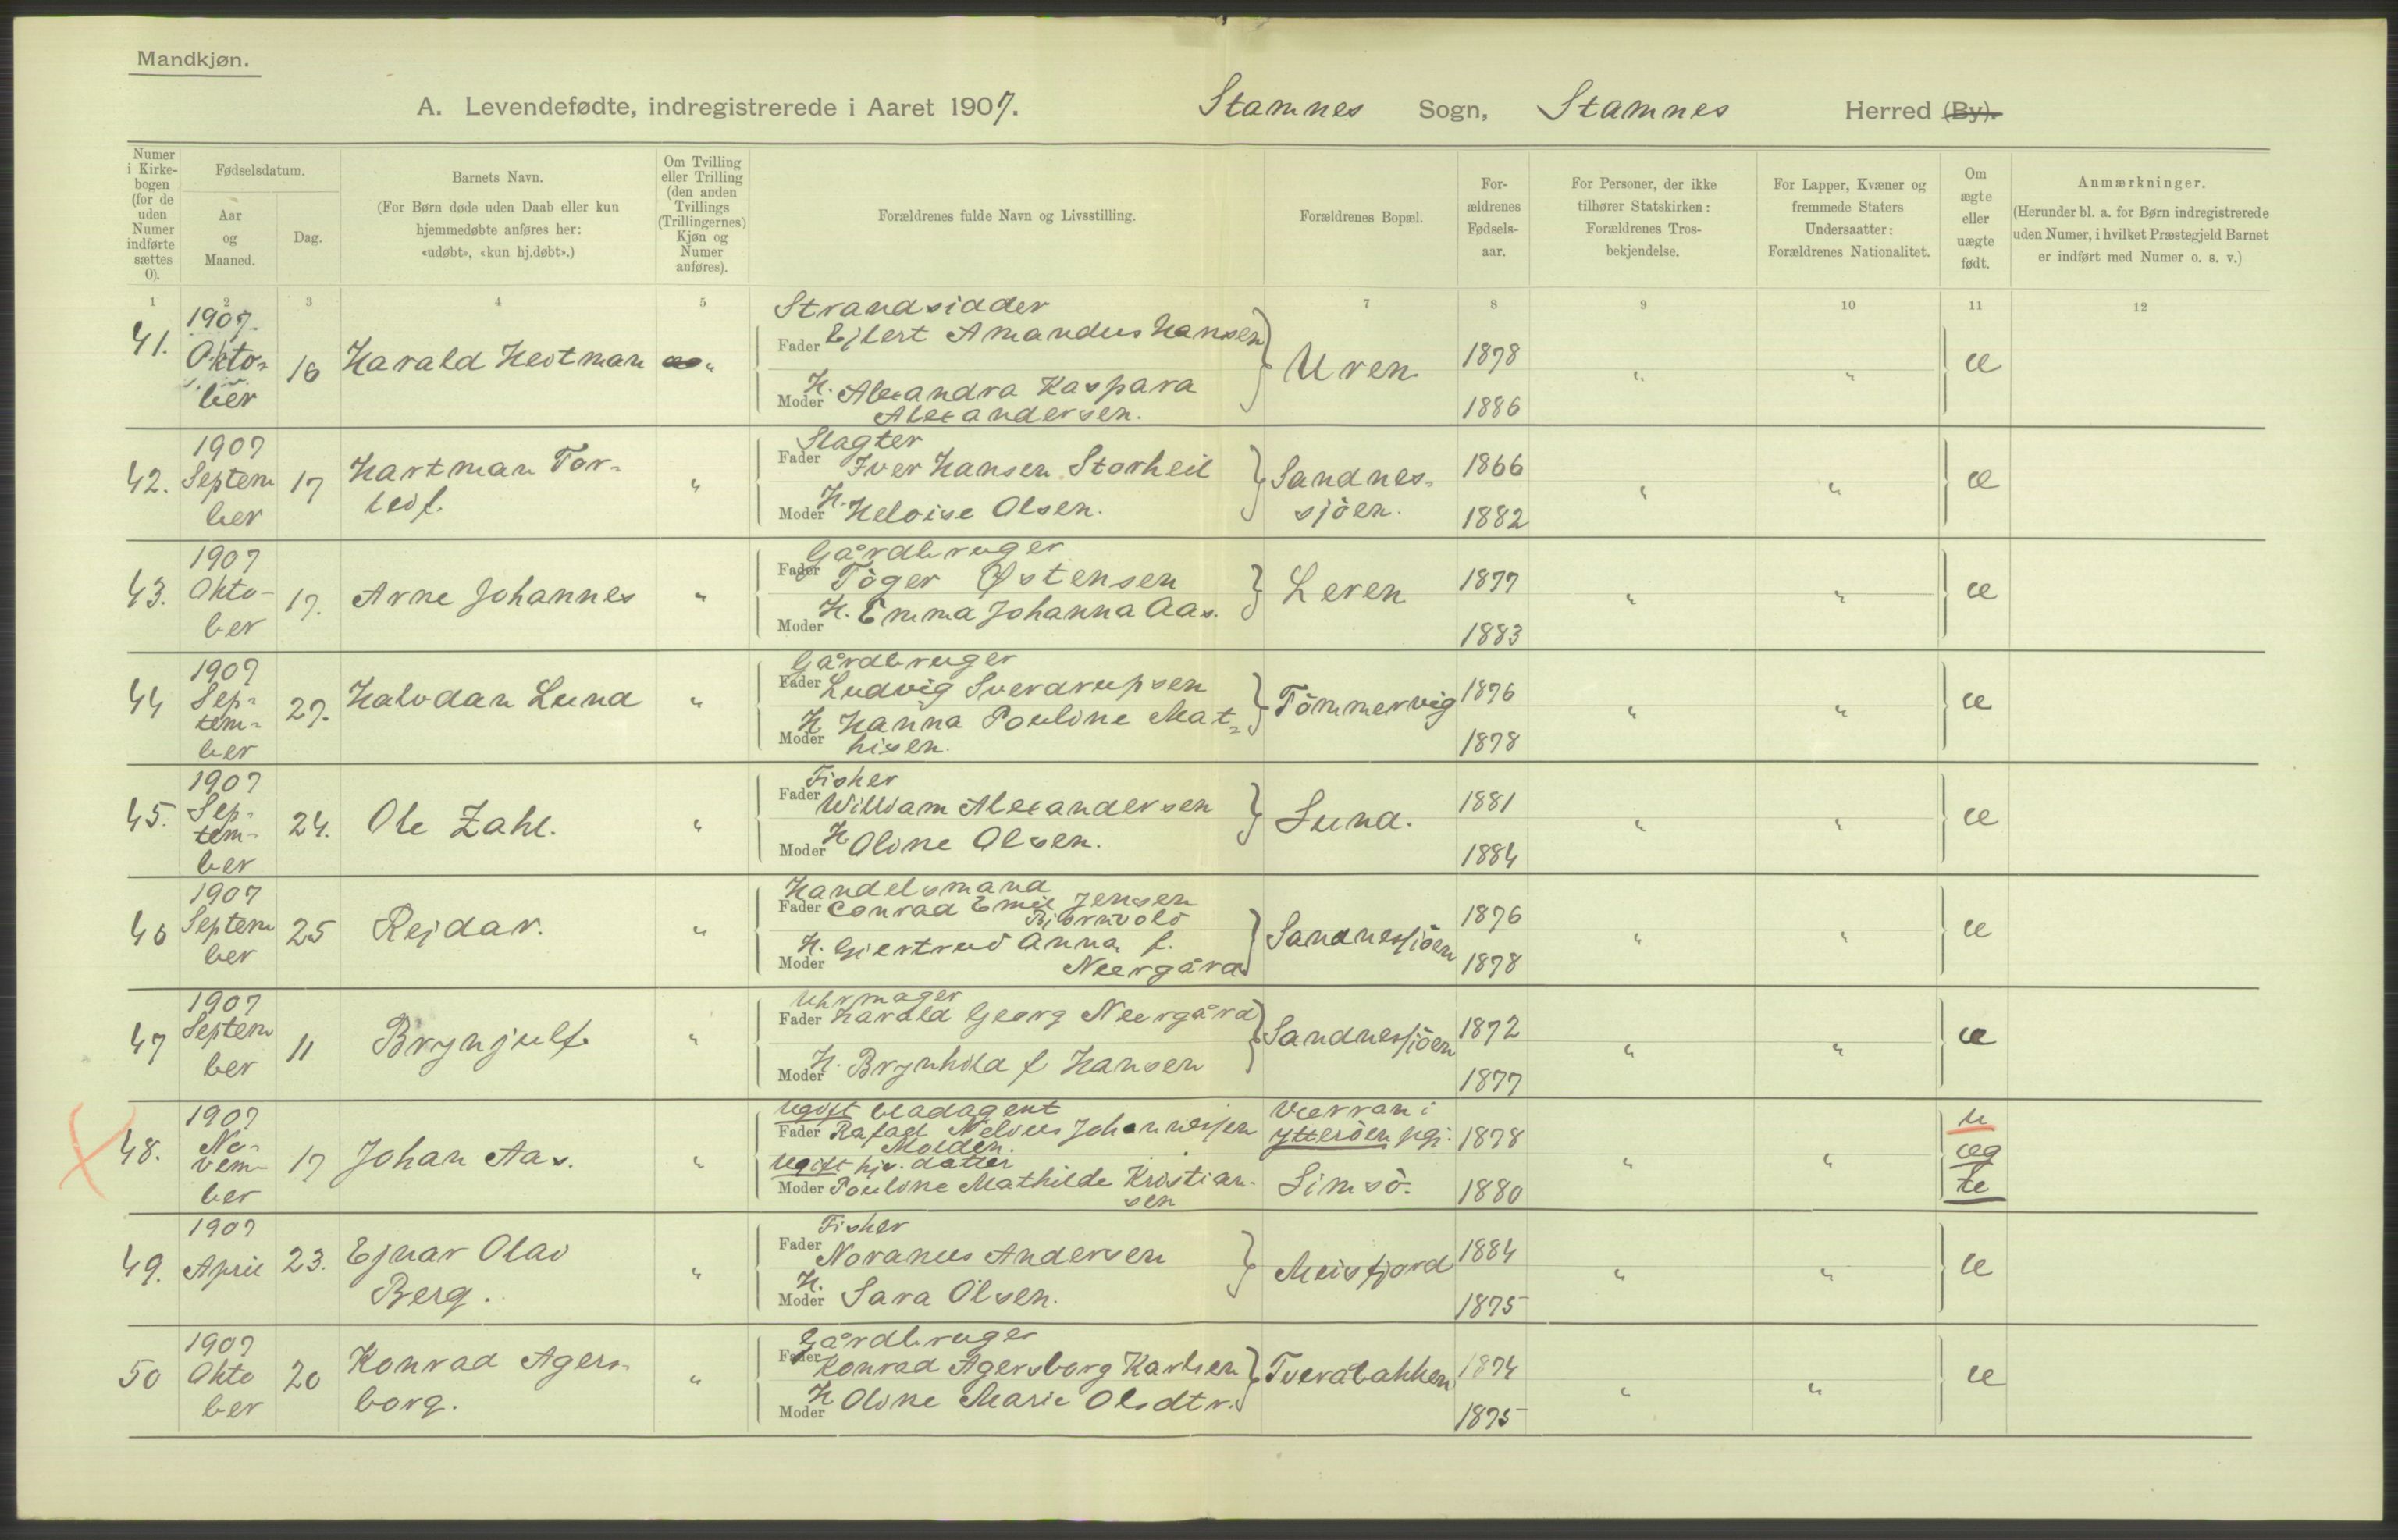 Mandkjøn.
A. Levendefødte, indregistrerede i Aaret 1907. Stamnes Sogn, Stamnes Herred (By).
Numer i Kirkebogen (for de uden Numer indførte sættes 0).
Fødselsdatum.
Aar og Maaned.
Dag.
Barnets Navn.
(For Børn døde uden Daab eller kun hjemmedøbte anføres her: «udøbt», «kun hj.døbt».)
Om Tvilling eller Trilling (den anden Tvillings (Trillingernes) Kjøn og Numer anføres).
Forældrenes fulde Navn og Livsstilling.
Forældrenes Bopæl.
Forældrenes Fødselsaar.
For Personer, der ikke tilhører Statskirken: Forældrenes Trosbekjendelse.
For Lapper, Kvæner og fremmede Staters Undersaatter: Forældrenes Nationalitet.
Om ægte eller uægte født.
Anmærkninger.
(Herunder bl. a. for Børn indregistrerede uden Numer, i hvilket Præstegjeld Barnet er indført med Numer o. s. v.)
1 2 3 4 5 7 8 9 10 11 12
41. 1907. Oktober 16 Harald Hedtman "
Strandsidder
Fader Ejlert Amandus Hansen
Moder H. Alexandra Kaspara
Alexandersen.
Uren 1878 1886 " " æ
42. 1907 September 17 Hartman Torleif. "
Slagter
Fader Iver Hansen Storheil
Moder H. Heloise Olsen.
Sandnessjöen. 1866 1882 " " æ
43. 1907 Oktober 17. Arne Johannes "
Gårdbruger
Fader Töger Østensen
Moder H. Emma Johanna Aas.
Leren 1877 1883 " " æ
44 1907 September 27. Halvdan Lund "
Gårdbruger
Fader Ludvig Sverdrupsen
Moder H Hanna Pouline Mathisen.
Tömmervig 1876 1878 " " æ
45. 1907 September 24. Ole Zahl. "
Fisker
Fader William Alexandersen
Moder H. Oline Olsen.
Lund. 1881 1884 " " æ
46 1907 September 25 Rejdar. "
Handelsmand
Fader Conrad Emil Jensen
Björnvold
Moder H. Giertrud Anna f.
Neergård
Sandnessjöen 1876 1878 " " æ
47 1907 September 11 Brynjulf. "
Uhrmager
Fader Harald Georg Neergård
Moder H. Brynhild f Hansen
Sandnessjöen 1872 1877 " " æ
48. 1907 November 17 Johan Aas. "
Ugift bladagent
Fader Rafael Nelvus Johannessen
Molden.
Ugift hjv. datter
Moder Pouline Mathilde Kristiansen
Værran i
Ytteröen pgj.
Limsö.
1878 1880 " " uægte
49. 1907 April 23. Ejnar Olav Berg. "
Fisker
Fader Noranus Andersen
Moder H. Sara Olsen.
Meisfjord 1884 1875 " " æ
50 1907 Oktober 20 Konrad Agersborg. "
Gårdbruger
Fader Konrad Agersborg Karlsen
Moder H Oline Marie Olsdtr.
Tveråbakken 1874 1875 " " æ